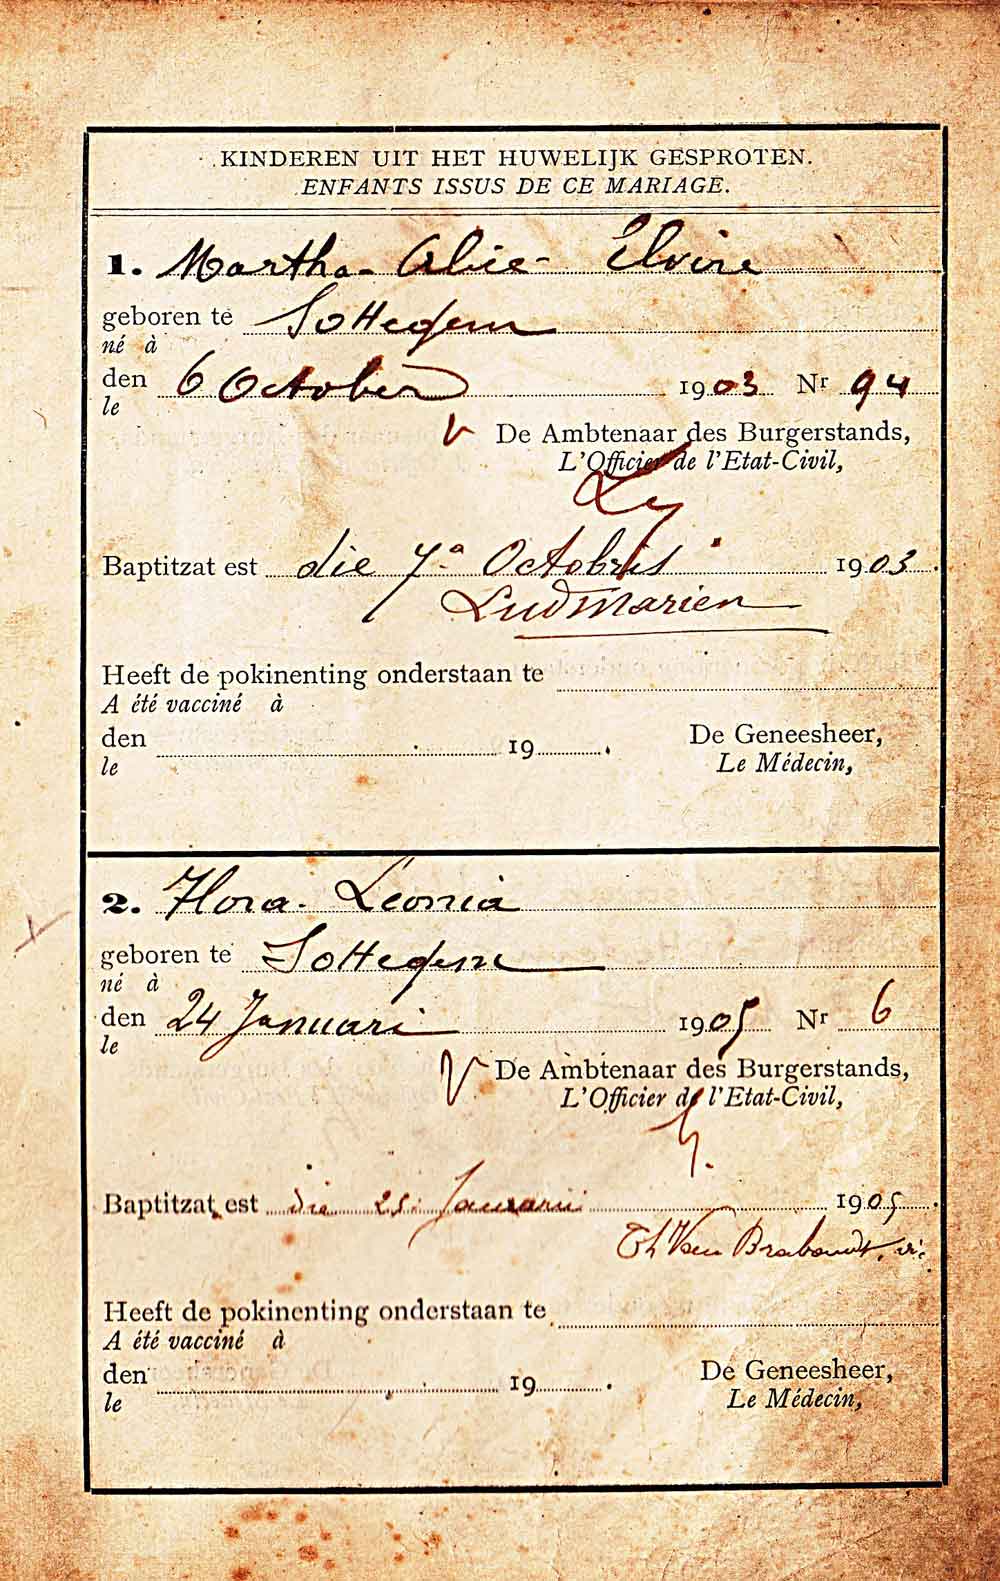 KINDEREN UIT HET HUWELIJK GESPROTEN.
ENFANTS ISSUS DE CE MARIAGE.
1. Martha - Alice - Elvire
geboren te Sottegem
né à
den 6 October 1903 Nr 94
le
De Ambtenaar des Burgerstands,
L'Officier de l'Etat-Civil,
Baptitzat est die 7a Octobris 1903.
Lud Marien
Heeft de pokinenting onderstaan te
A été vacciné à
den 19 .
le
De Geneesheer,
Le Médecin,
2. Flora - Leonia
geboren te Sottegem
né à
den 24 Januari 1905 Nr 6
le
De Ambtenaar des Burgerstands,
L'Officier de l'Etat-Civil,
Baptitzat est die 25 Januarii 1905.
Th Van Brabandt, vic.
Heeft de pokinenting onderstaan te
A été vacciné à
den 19 .
le
De Geneesheer,
Le Médecin,